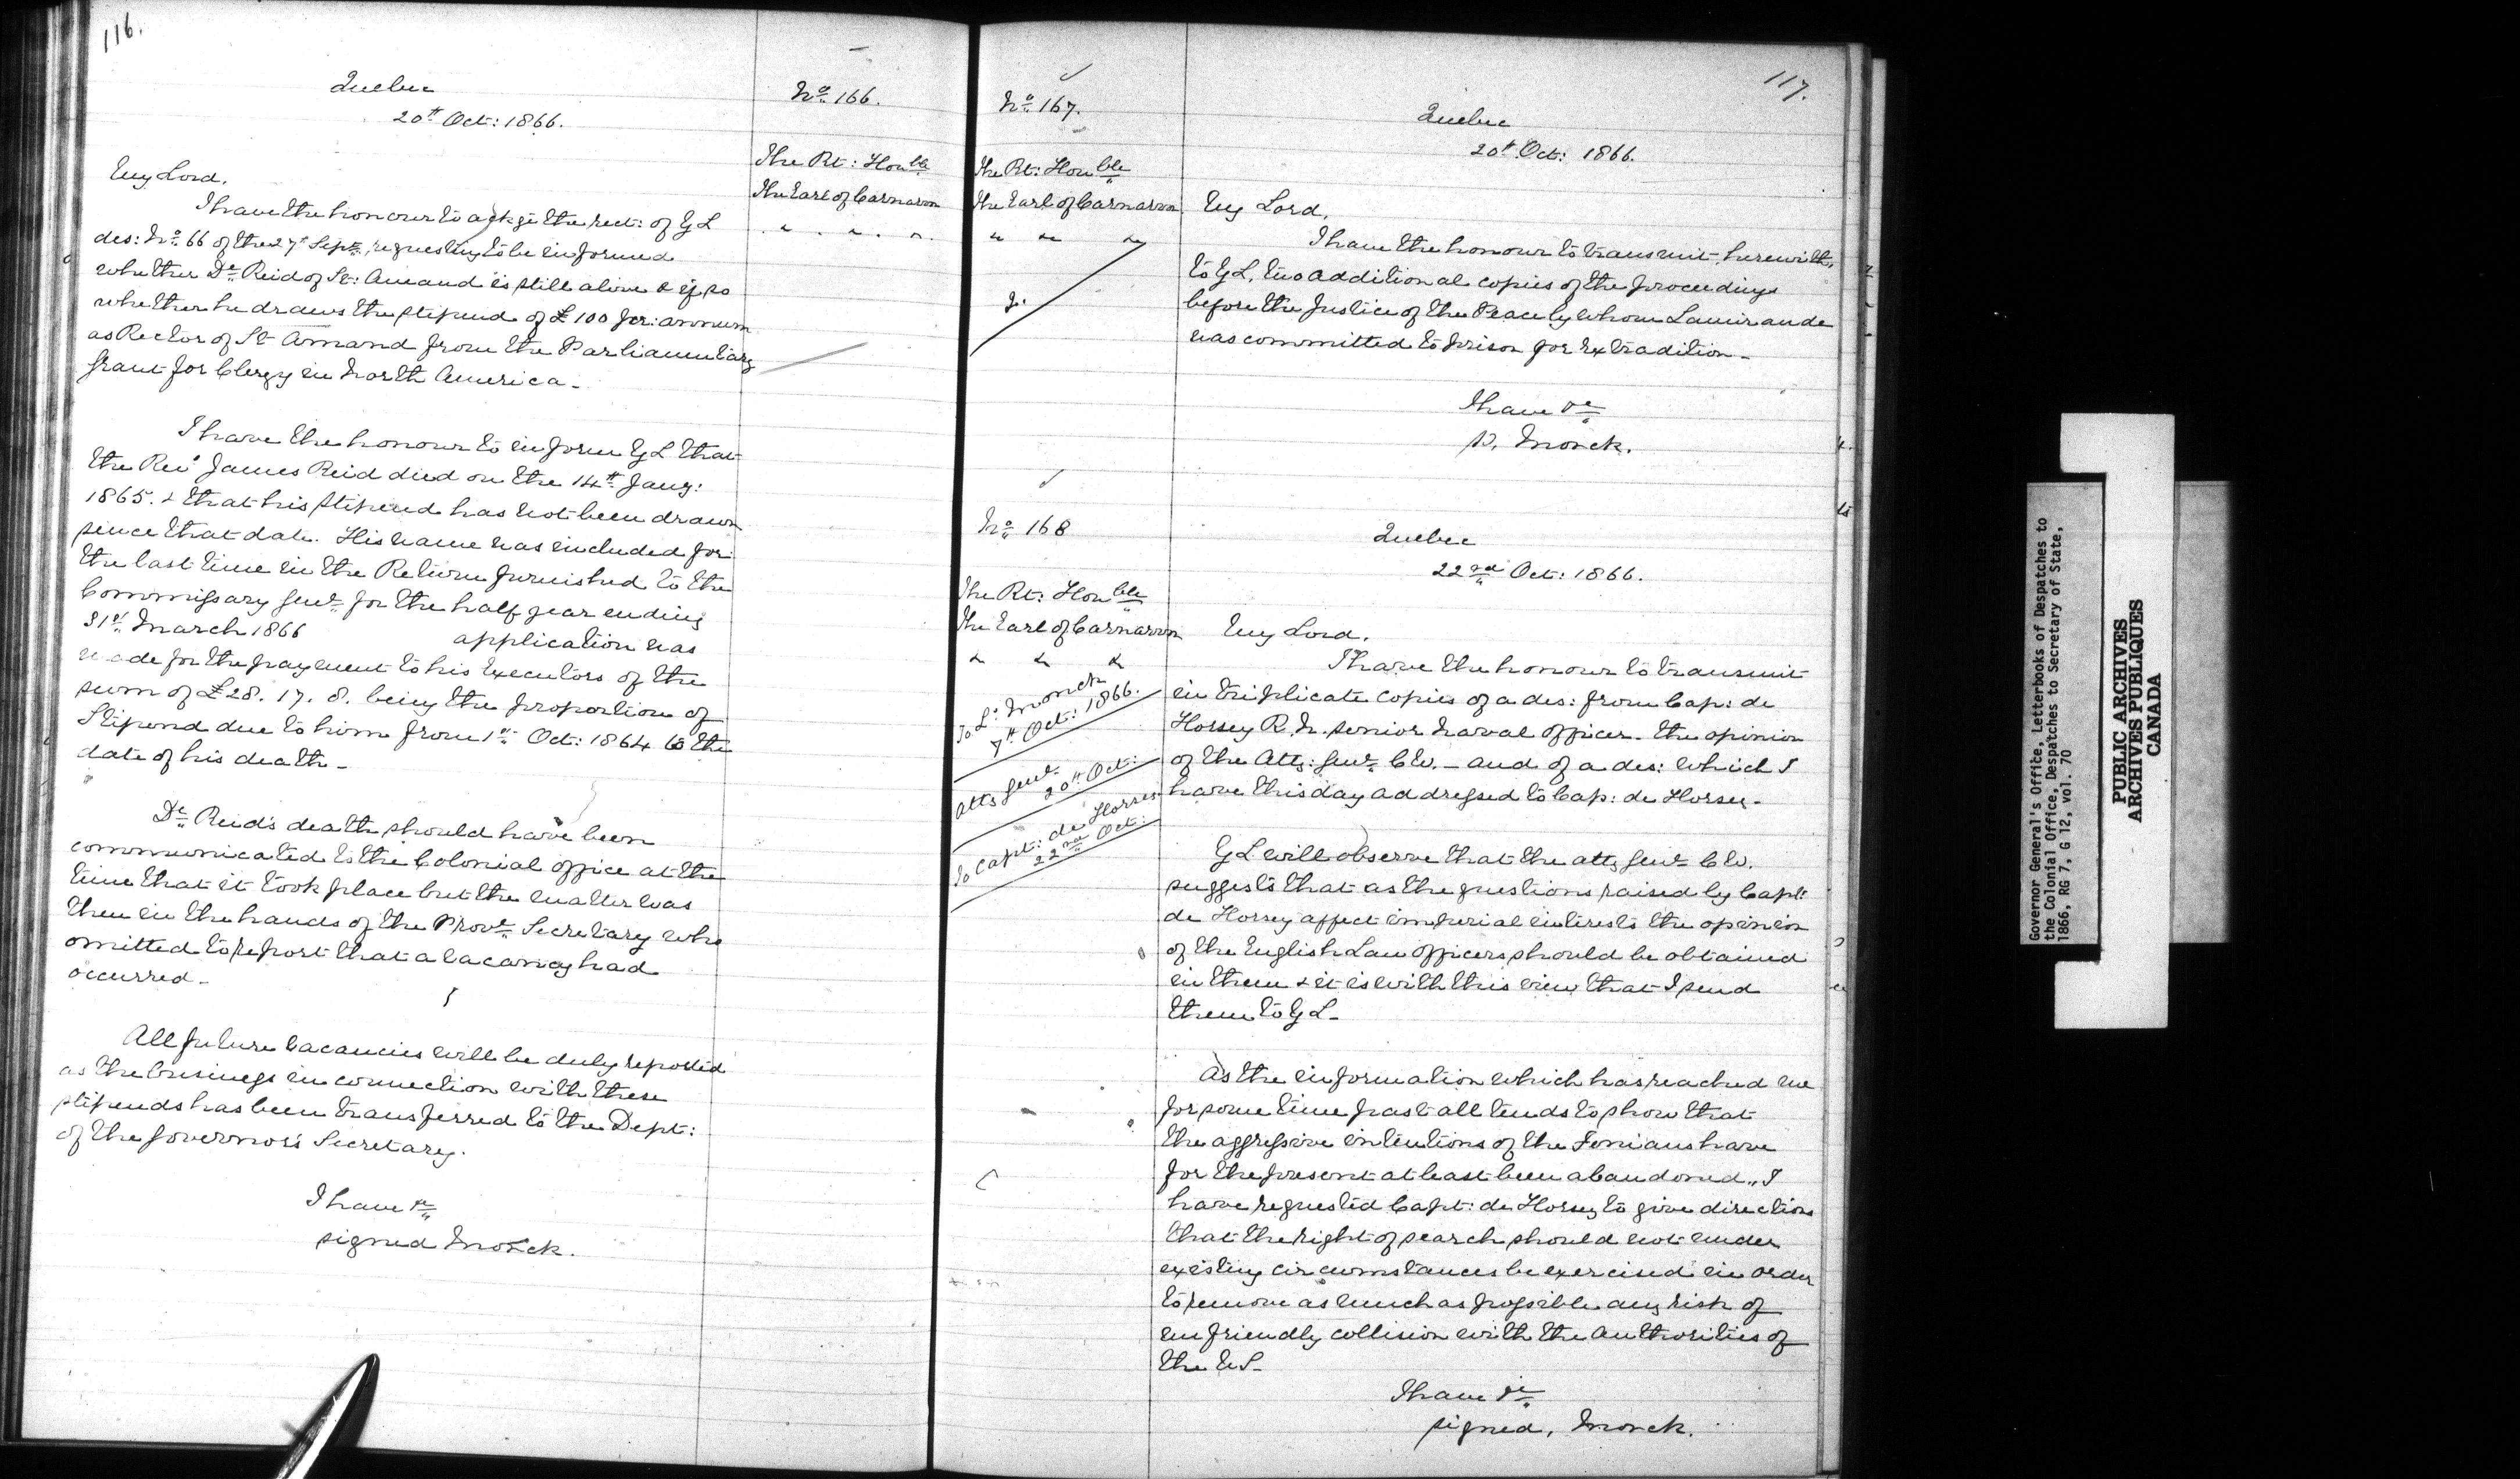 116.
Quebec
20th Oct: 1866.
No. 166.
The Rt: Honble
The Earl of Carnarvon
" " " "
My Lord,
I have the honour to ackge the rect: of Y L
des: No. 66 of the 27th Sepr, requesting to be informed
whether Dr Reid of St: Amand is still alive & if so
whether he draws the stipend of £100 per: annum
as Rector of St Amand from the Parliamentary
Grant for Clergy in North America_
I have the honour to inform Y L that
the Revd James Reid died on the 14th Jany:
1865. & that his stipend has not been drawn
since that date. His name was included for
the last time in the Return furnished to the
Commissary Genl for the half year ending
31st March 1866 application was
made for the payment to his Executors of the
sum of £28. 17. 8. being the proportion of
Stipend due to him from 1st Oct: 1864 to the
date of his death_
Dr Reid's death should have been
communicated to the Colonial office at the
time that it took place but the matter was
then in the hands of the Provl Secretary who
omitted to report that a vacancy had
occurred_
All future vacancies will be duly reported
as the business in connection with these
stipends has been transferred to the Dept:
of the Governor's Secretary.
I have &c
signed Monck.
117.
No. 167.
Quebec
20th Oct: 1866.
The Rt: Honble
The Earl of Carnarvon
" " "
My Lord,
I have the honour to transmit, herewith,
to Y L, two additional copies of the proceedings
before the Justice of the Peace by whom Lamirande
was committed to prison for Extradition_
I have &c
s. Monck.
No. 168
Quebec
22nd Oct: 1866.
The Rt: Honble
The Earl of Carnarvon
" " "
To Ld Monck
7th Oct: 1866.
Atty Genl
20th Oct:
To Capt: de Horsey
22nd Oct:
My Lord.
I have the honour to transmit
in triplicate copies of a des: from Cap: de
Horsey R.N. senior Naval officer_ the opinion
of the Atty: Genl C W._ and of a des: which I
have this day addressed to Cap: de Horsey_
Y L will observe that the Atty Genl C W.
suggests that as the questions raised by Capt:
de Horsey affect imperial interests the opinion
of the English Law Officers should be obtained
in them & it is with this view that I send
them to Y L_
As the information which has reached me
for some time past all tends to show that
the aggressive intentions of the Fenians have
for the present at least been abandoned, I
have requested Capt: de Horsey to give directions
that the right of search should not under
existing circumstances be exercised in order
to remove as much as possible any risk of
unfriendly collision with the authorities of
the U S_
I have &c
signed, Monck.
Governor General's Office, Letterbooks of Despatches to
the Colonial Office, Despatches to Secretary of State,
1866, RG 7, G 12, vol. 70
PUBLIC ARCHIVES
ARCHIVES PUBLIQUES
CANADA